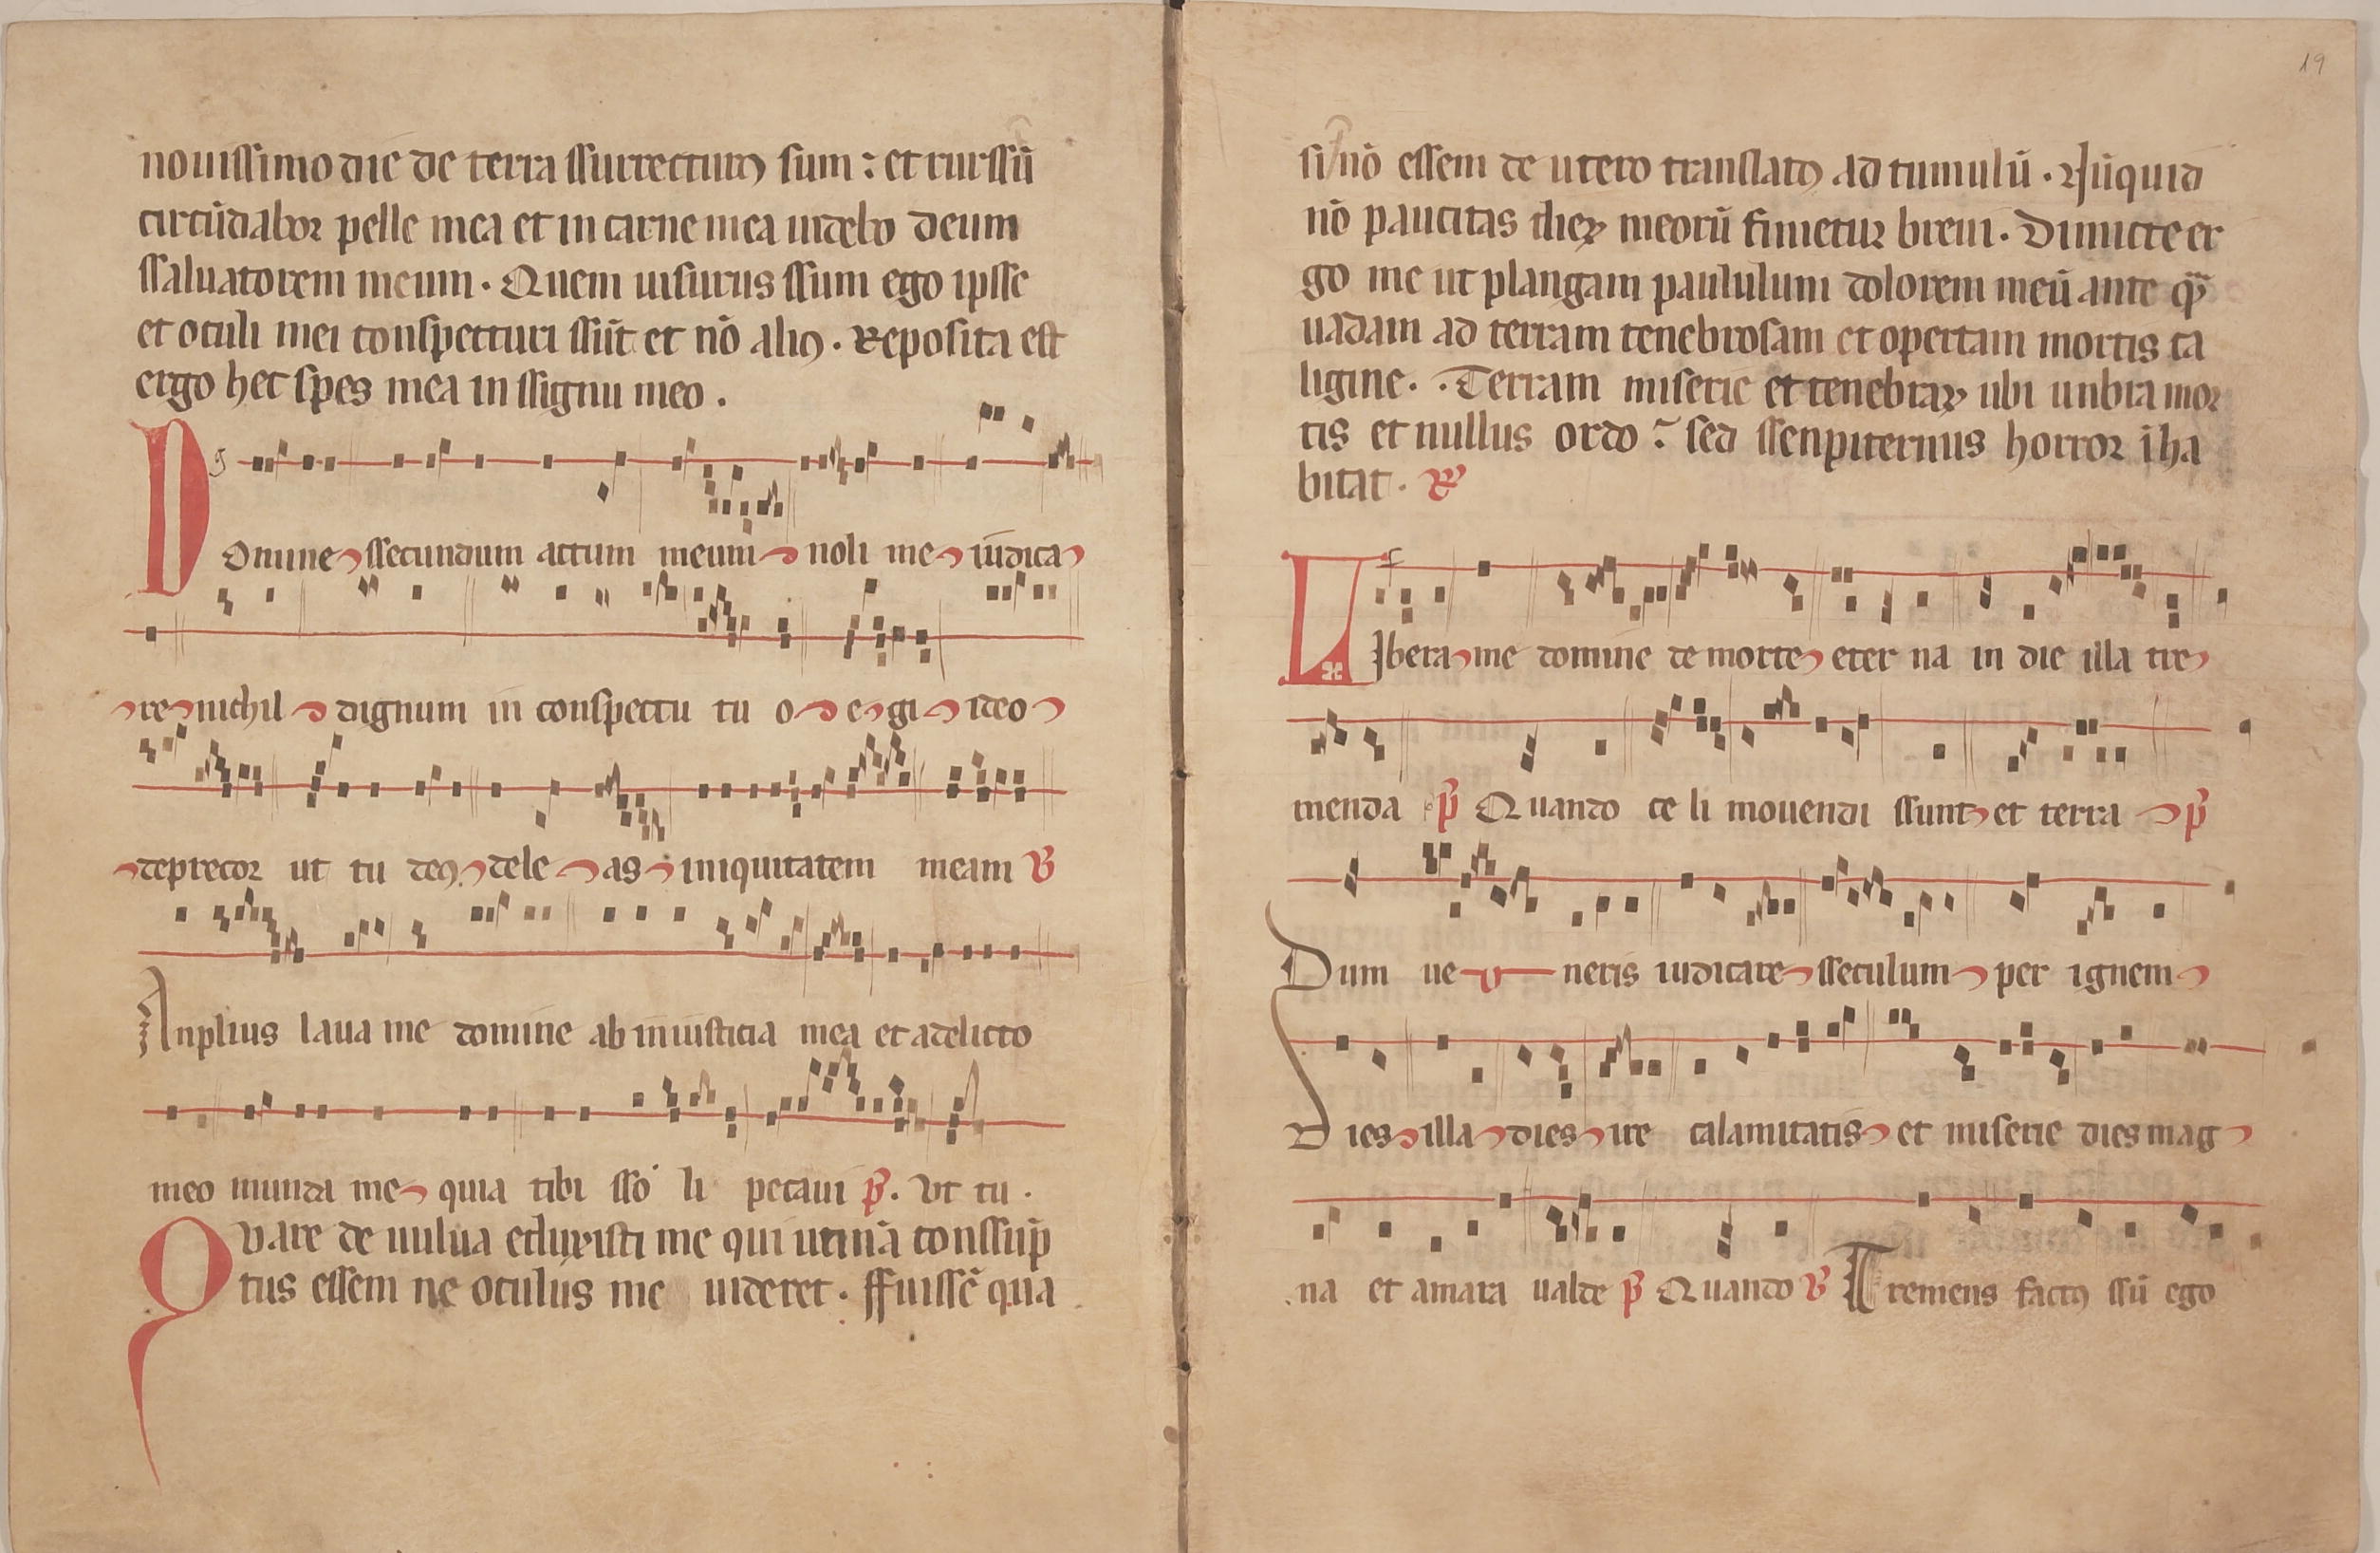 nouissimo die de terra ssurrecturꝰ sum : et rurssū
circūdabor pelle mea et in carne mea uidebo deum
ssaluatorem meum . Quem uisurus ssum ego ipsse
et oculi mei conspecturi ssūt et nō aliꝰ . Reposita est
ergo hec spes mea in ssignu meo .
Domine ssecundum actum meum noli me iudica
re nichil dignum in conspectu tu o e gi ideo
deprecor ut tu deꝰ dele as iniquitatem meam ℣
Anplius laua me domine ab iniusticia mea et adelicto
meo munda me quia tibi sso li pecaui p̄ . Vt tu .
Quare de uulua eduxisti me qui utinā conssūp
tus essem ne oculus me uideret . ffuissē qua
19
si nō essem de utero translatꝰ ad tumulū . Nūquid
nō paucitas dieꝝ meorū finietur breui . Dimicte er
go me ut plangam paululum dolorem meū ante qͣ̄
uadam ad terram tenebrosam et opertam mortis ca
ligine . Terram miserie et tenebraꝝ ubi unbra mor
tis et nullus ordo : sed ssenpiternus horror īha
bitat . ℟
Libera me domine de morte eter na in die illa tre
menda p̄ Quando ce li mouendi ssunt et terra p̄
Dum ue neris iudicare sseculum per ignem
Dies illa dies ire calamitatis et miserie dies mag
na et amara ualde p̄ Quando ℣ Tremens factꝰ ssū ego